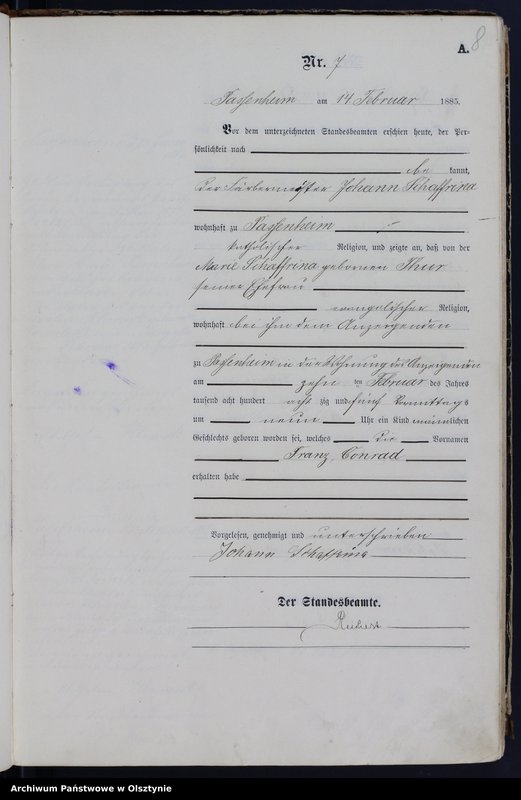 8
A.
Nr. 7
Passenheim am 14 Februar 1885.
Vor dem unterzeichneten Standesbeamten erschien heute, der Per-
sönlichkeit nach
be kannt,
der Färbermeister Johann Schaffrina
wohnhaft zu Passenheim
katholischer Religion, und zeigte an, daß von der
Marie Schaffrina geborenen Thur
seiner Ehefrau
evangelischer Religion,
wohnhaft bei ihm dem Anzeigenden
zu Passenheim in der Wohnung des Anzeigenden
am zehn ten Februar des Jahres
tausend acht hundert acht zig und fünf Vormittags
um neun Uhr ein Kind männlichen
Geschlechts geboren worden sei, welches die Vornamen
Franz, Conrad
erhalten habe
Vorgelesen, genehmigt und unterschrieben
Johann Schaffrina
Der Standesbeamte.
Archiwum Państwowe w Olsztynie